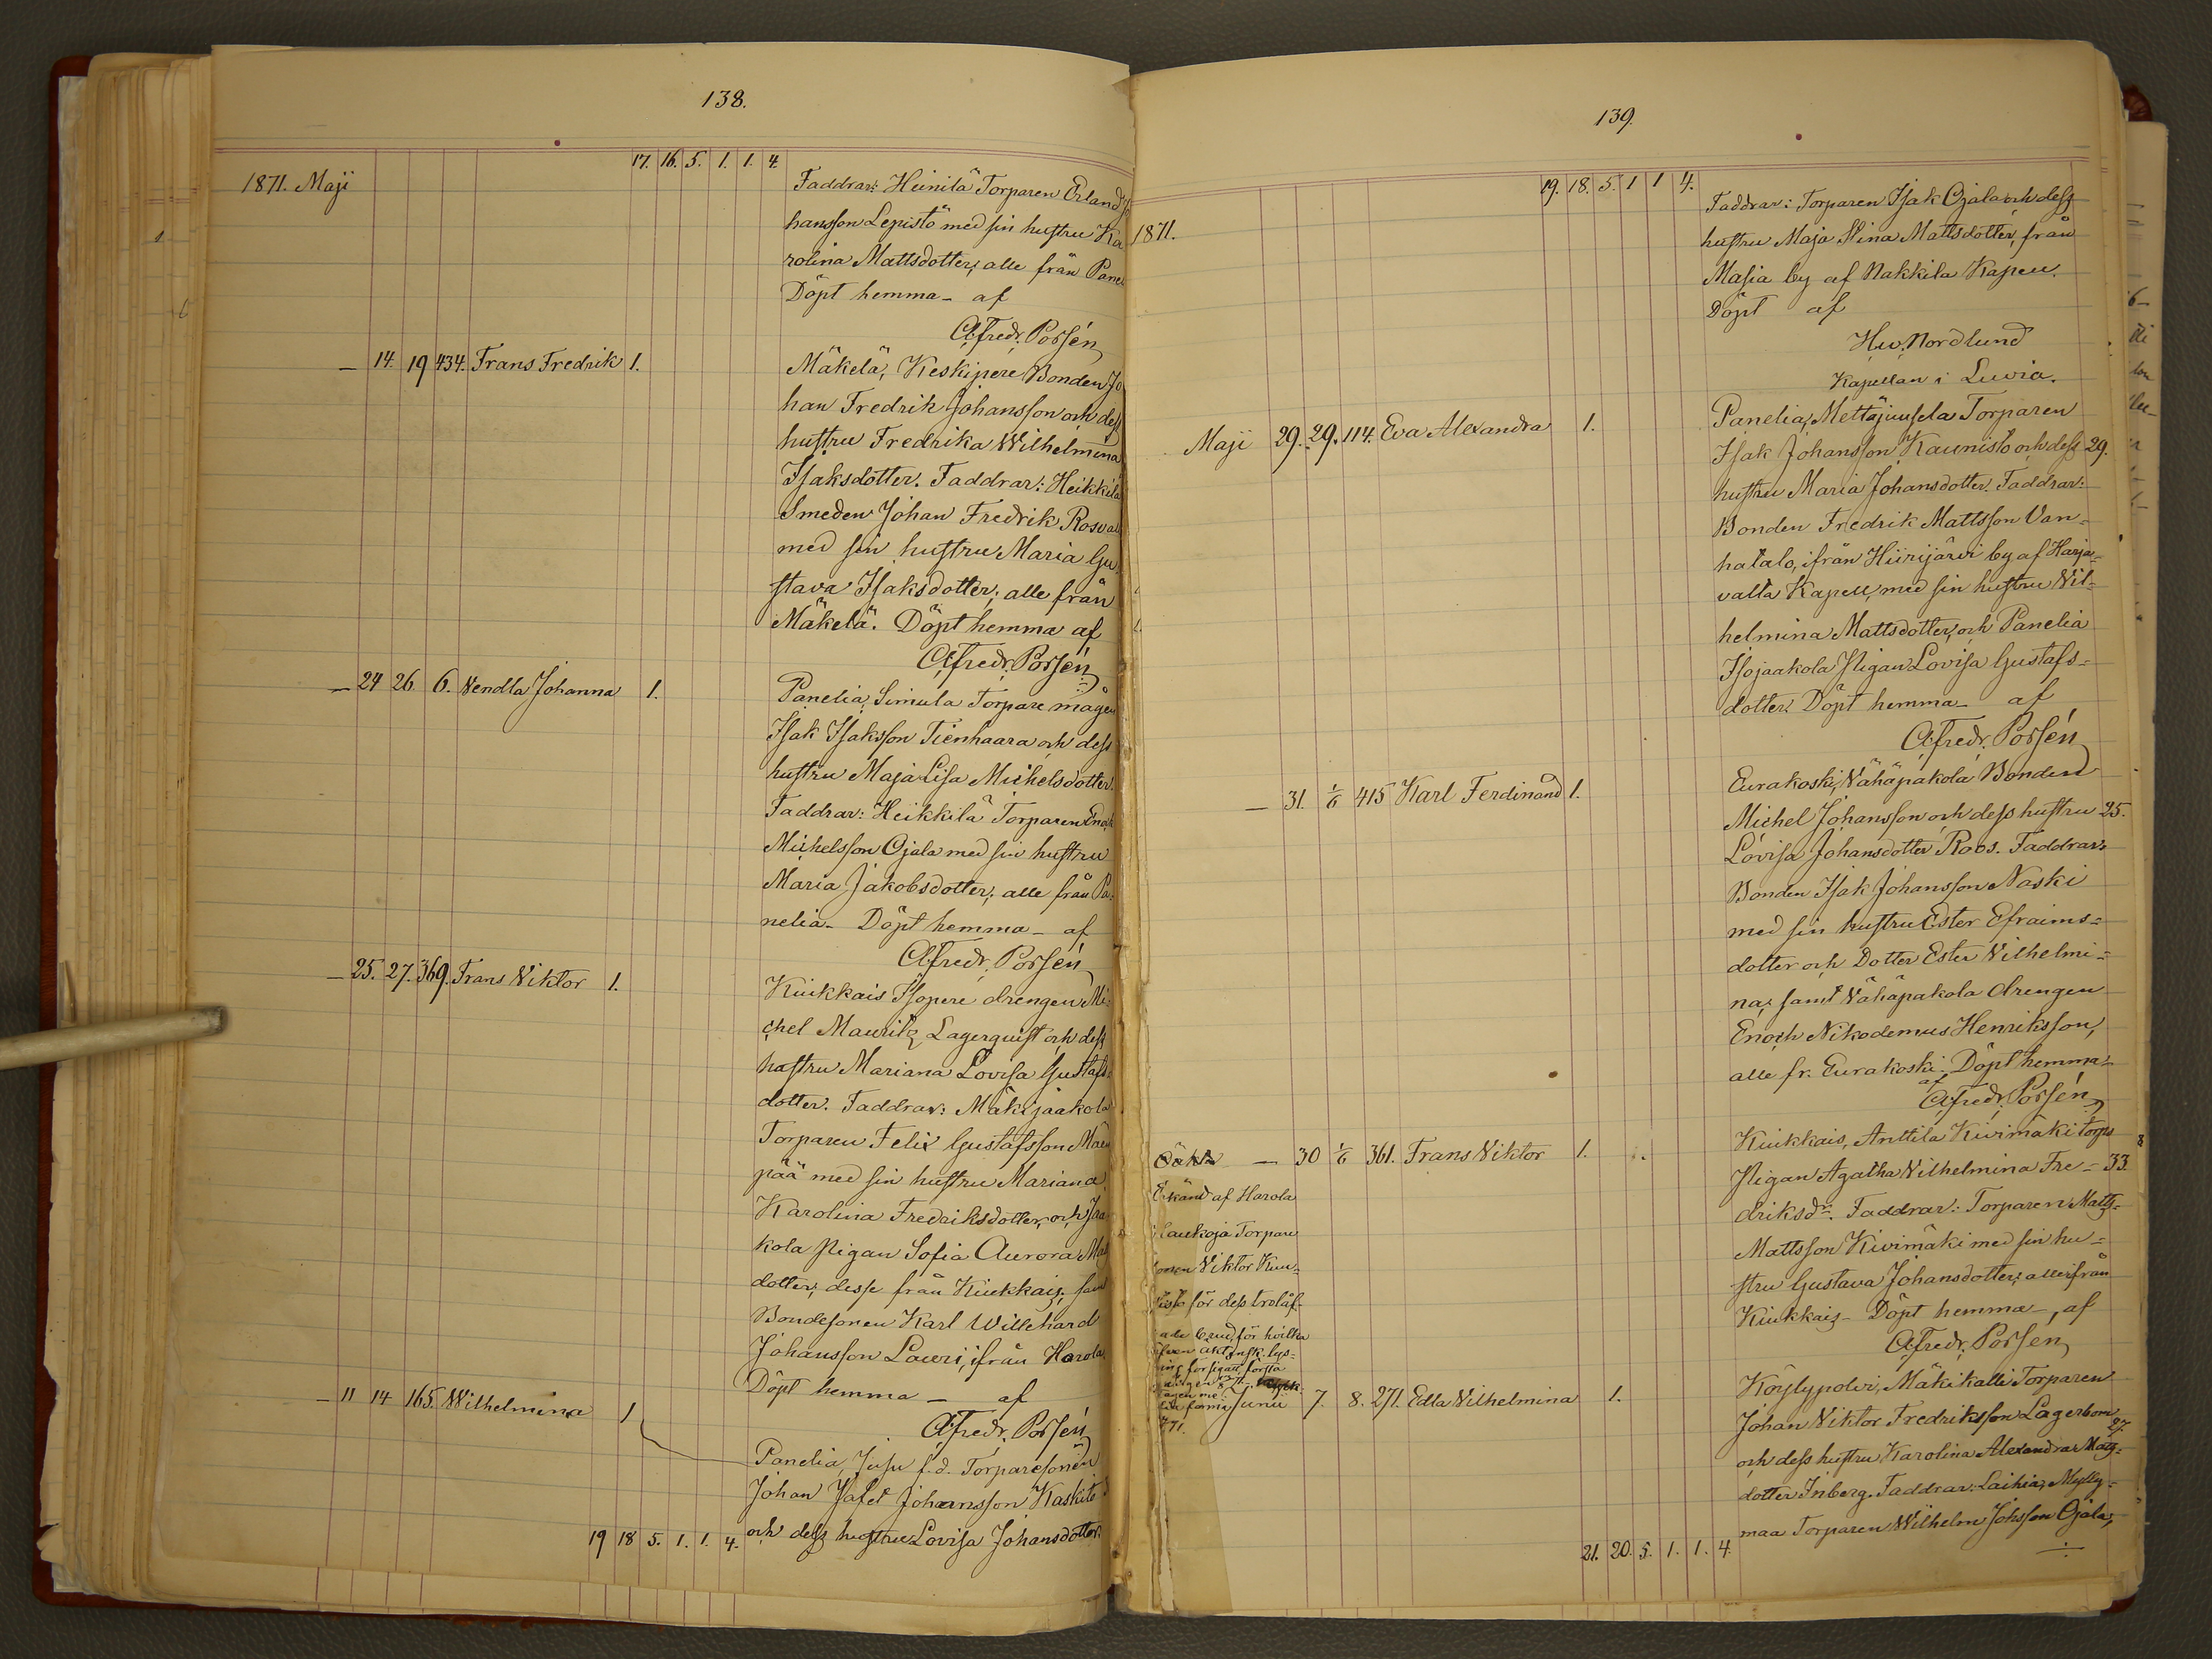 138.
17. 16. 5. 1. 1. 4.
1871. Maji
Faddrar: Heinilä Torparen Erland Jo
hansson Lepistö med sin hustru Ka
rolina Mattsdotter; alle från Pane
Döpt hemma – af
Alfredr. Porsén
– 14. 19 434. Frans Fredrik 1.
Mäkelä, Keskipere Bonden Jo
han Fredrik Johansson och dess
hustru Fredrika Wilhelmina
Isaksdotter. Faddrar: Heikkilä
Smeden Johan Fredrik Rosva
med sin hustru Maria Gu
stava Isaksdotter; alle från
Mäkelä. Döpt hemma af
Alfredr. Porsén
– 24 26. 6. Vendla Johanna 1.
Panelia, Simula Torpare mågen
Isak Isaksson Tienhaara och dess
hustru Maja Lisa Michelsdotter.
Faddrar: Heikkilä Torparen Enok
Michelsson Ojala med sin hustru
Maria Jakobsdotter; alle från Pa-
nelia – Döpt hemma – af
Alfredr. Porsén
– 25. 27. 369. Frans Viktor 1.
Kiukkais Isopere drengen Mi-
chel Mauritz Lagerquist och dess
hustru Mariana Lovisa Gustafs-
dotter. Faddrar: Mäkijaakola
Torparen Felix Gustafsson
pää med sin hustru Mariana
Karolina Fredriksdotter, och Jaa
kola Pigan Sofia Aurora
dotter; desse från Kiukkais; samt
Bondesonen Karl Willehard
Johansson Lauri, ifrån Harola.
Döpt hemma – af
Alfredr. Porsén
– 11 14 165. Wilhelmina 1
Panelia, Jusu f.d. Torparesonen
Johan Jafet Johansson Kaskito
och dess hustru Lovisa Johansdotter.
19 18 5. 1. 1. 4.
139.
19. 18. 5. 1 1 4.
1871.
Faddrar: Torparen Isak Ojala och dess
hustru Maja Stina Mattsdotter, från
Masia by af Nakkila Kapell.
Döpt af
Hw. Nordlund
Kapellan i Luvia.
Maji 29. 29. 114. Eva Alexandra 1.
Panelia, Mettäjuusela Torparen
Isak Johansson Kaunisto och dess 29.
hustru Maria Johansdotter. Faddrar:
Bonden Fredrik Mattsson Van-
hatalo, ifrån Hiirijärvi by af Harja-
valta Kapell, med sin hustru Vil-
helmina Mattsdotter, och Panelia
Isojaakola Pigan Lovisa Gustafs-
dotter. Döpt hemma – af
Alfredr. Porsén
– 31. 1/6 415 Karl Ferdinand 1.
Eurakoski, Vähäpakola Bonden
Michel Johansson och dess hustru 25.
Lovisa Johansdotter Roos. Faddrar:
Bonden Isak Johansson Naski
med sin hustru Ester Efraims-
dotter och Dotter Ester Vilhelmi-
na; samt Vähäpakola drengen
Enoch Nikodemus Henriksson,
alle fr. Eurakoski. Döpt hemma –
af
Alfredr. Porsén
Oäkta – 30 1/6 361. Frans Viktor 1.
Kiukkais, Anttila Kivimäki torps
Pigan Agatha Vilhelmina Fre- 33.
driksdr. Faddrar: Torparen Matts
Mattsson Kivimäki med sin hu-
stru Gustava Johansdotter; alle ifrån
Kiukkais – Döpt hemma –, af
Alfredr. Porsen
Erkänd af Harola
Haukoja Torpare
sonen Viktor Kun-
nisto för dess trolof-
vade brud, för hvilka
Junii 7. 8. 271. Edla Vilhelmina 1.
Köylypolvi, Mäkikalli Torparen
Johan Viktor Fredriksson Lagerbom
27.
och dess hustru Karolina Alexandra Matts-
dotter Inberg. Faddrar: Laihia, Mylly-
maa Torparen Wilhelm Johsson Ojala,
21. 20. 5. 1. 1. 4.